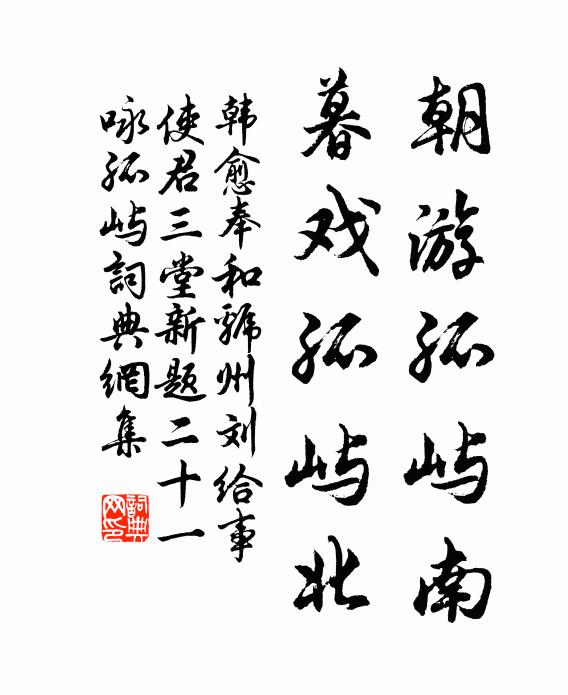 朝游孤屿南
暮戏孤屿北
韩愈奉和虢州刘给事
使君三堂新题二十一
咏孤屿詞典網集
詞典
网印